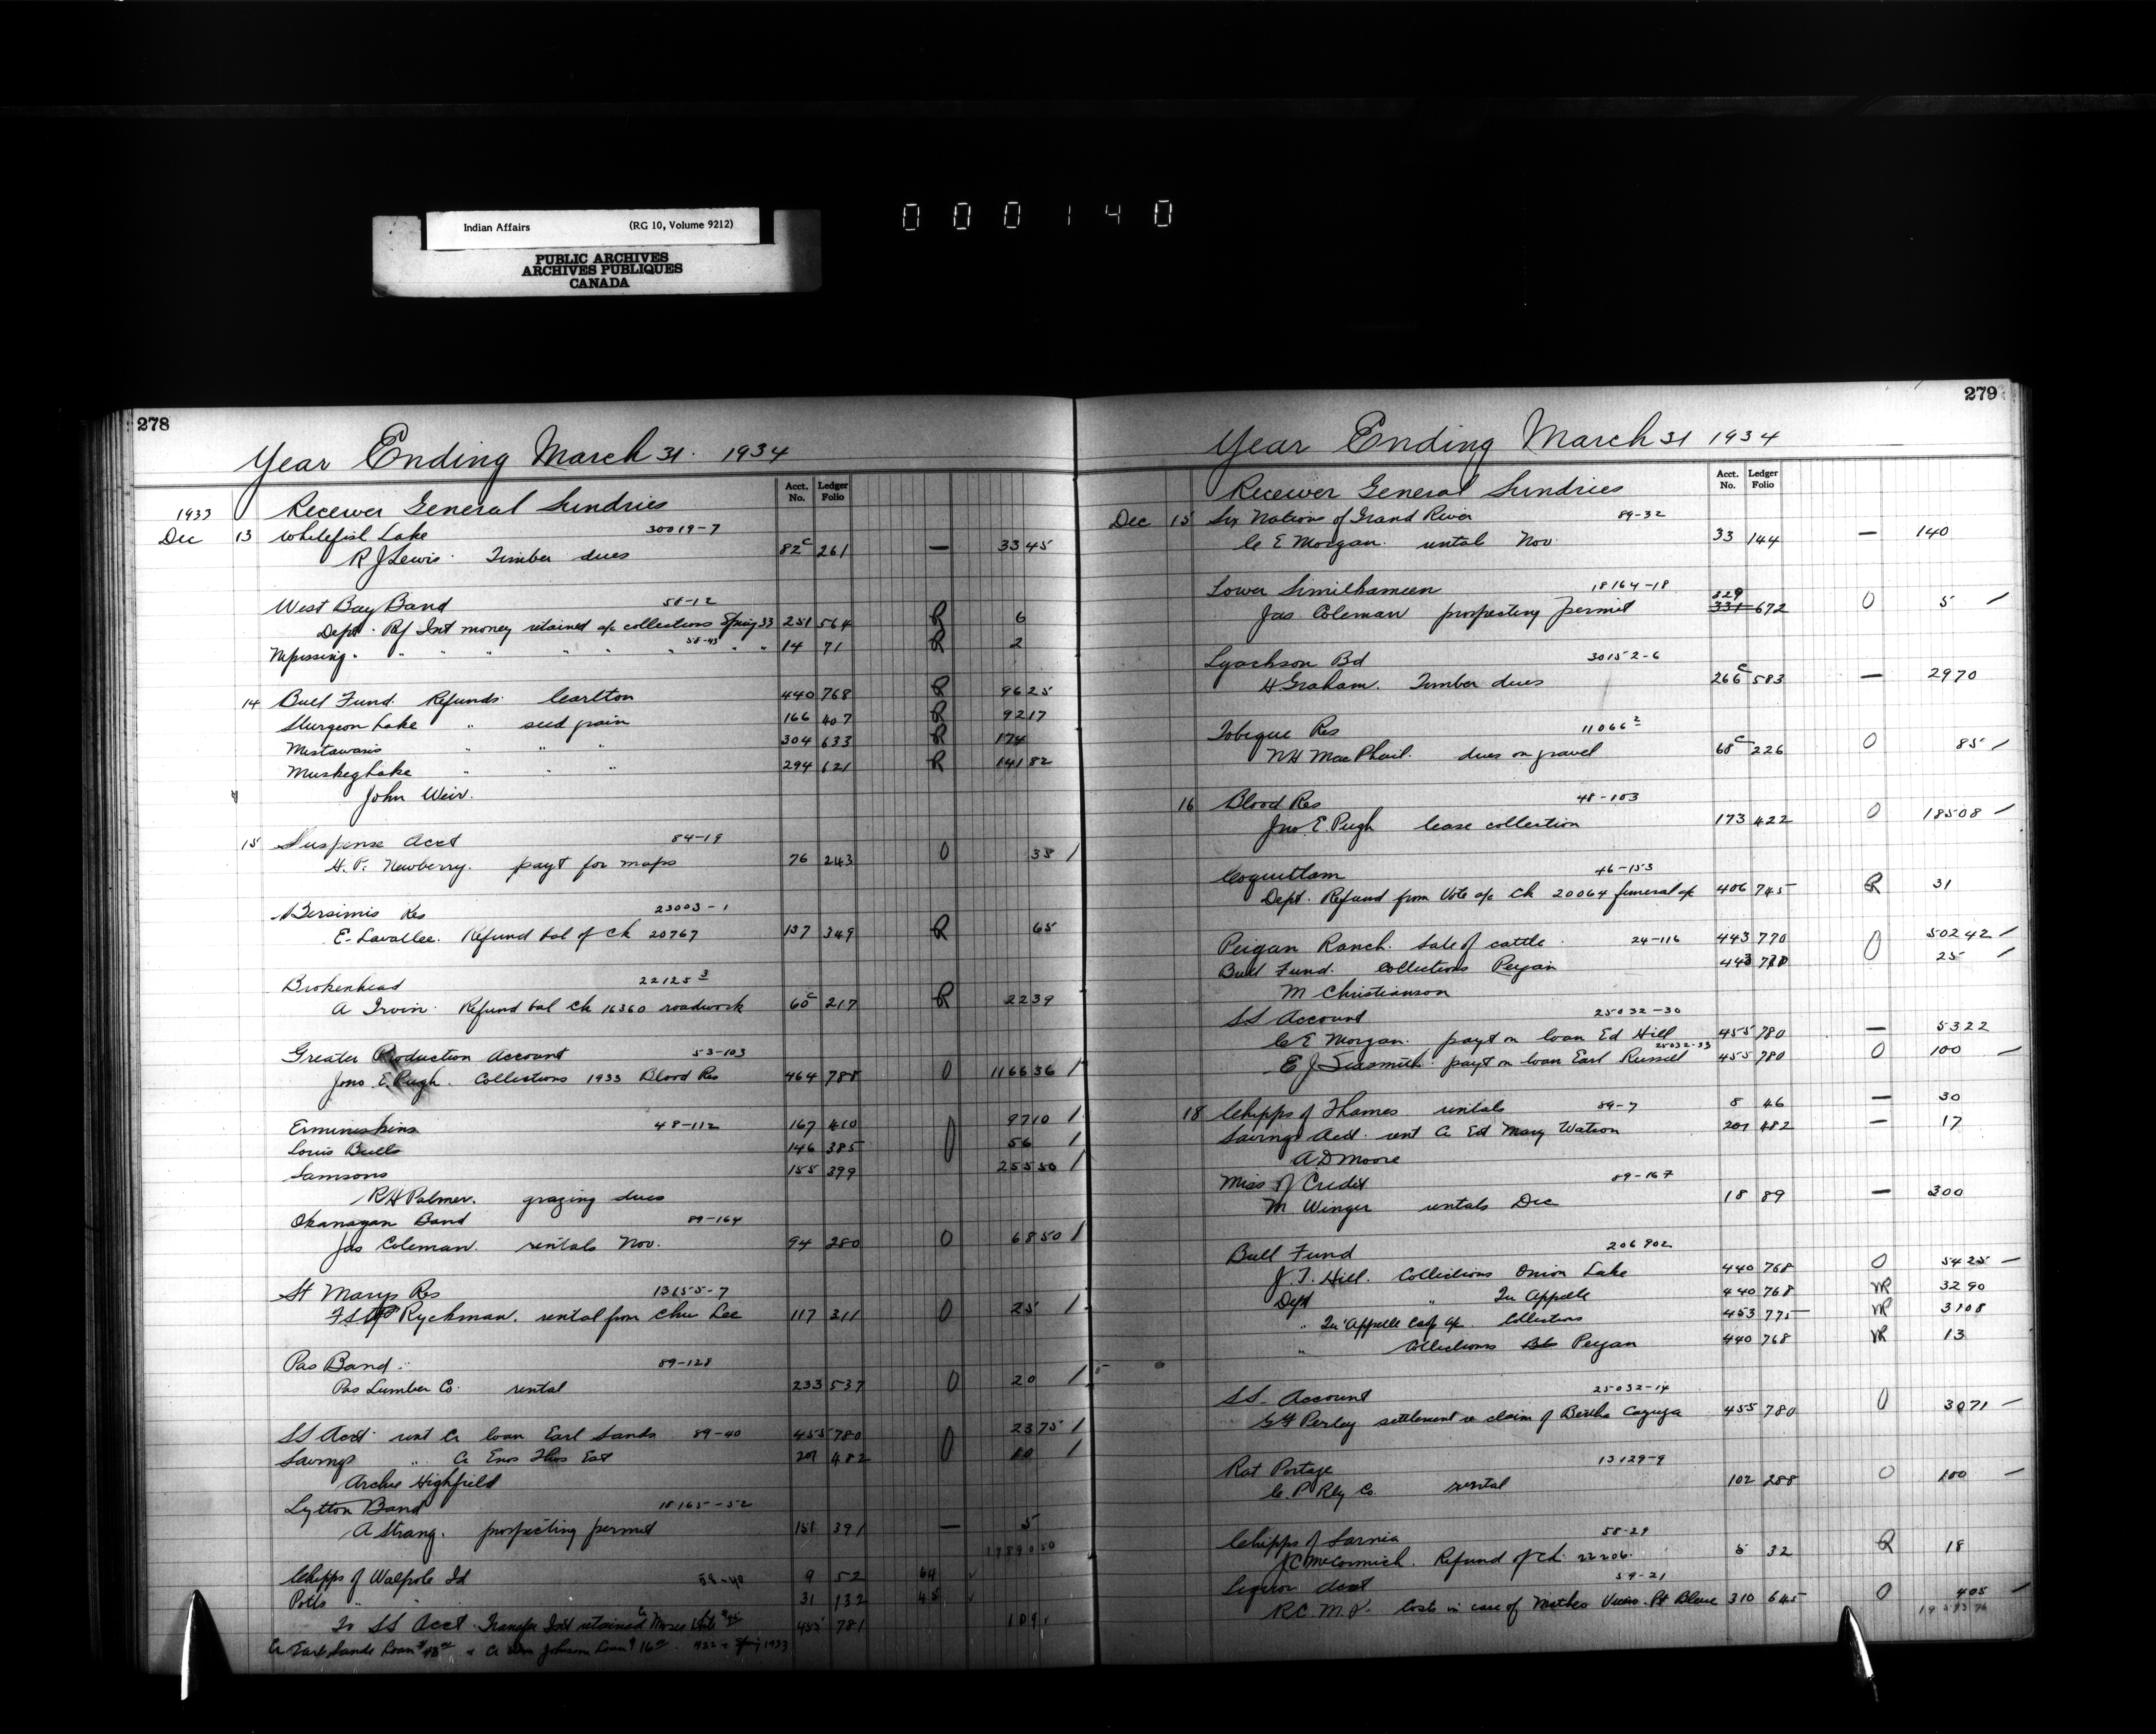 Indian Affairs (RG 10, Volume 9212)
PUBLIC ARCHIVES
ARCHIVES PUBLIQUES
CANADA
000140
278
Year Ending March 31. 1934
Acct. No. Ledger Folio
1933 Receiver General Sundries
Dec 13 Whitefish Lake 30019-7
R J Lewis. Timber dues 82c 261 — 33 45
West Bay Band 58-12
Dept. Rf Int money retained a/c collections Spring 33 251 564 R 6
Nipissing " " " " " 58-43 " " 14 71 R 2
14 Bull Fund. Refunds Carlton 440 768 R 96 25
Sturgeon Lake " seed grain 166 407 R 92 17
Mistawasis " " " 304 633 R 174
Muskeg Lake " " " 294 621 R 141 82
John Weir.
15 Suspense Acct 84-19
H. P. Newberry. payt for maps 76 243 0 38 /
Bersimis Res 23003-1
E. Lavallee. Refund bal of Ck 20767 137 349 R 65
Brokenhead 22125 3
A Irvin. Refund bal Ck 16360 roadwork 60c 217 R 22 39
Greater Production Account 53-103
Jno E. Pugh. Collections 1933 Blood Res 464 788 0 1166 36 /
Ermineskins 48-112 167 410 97 10 /
Louis Bulls 146 385 0 56 /
Samsons 155 399 255 50 /
R H Palmer. grazing dues
Okanagan Band 89-164
Jas Coleman. rentals Nov. 94 280 0 68 50 /
St Marys Res 13155-7
Ryckman. rental from Chu Lee 117 311 0 25 /
Pas Band. 89-128
Pas Lumber Co. rental 233 537 0 20 /
SS Acct. rent Cr loan Earl Sands 89-40 455 780 23 75 /
Savings " Cr Enos Thos Est 201 482 0 10 /
Archie Highfield
Lytton Band 18165-52
A Strang. prospecting permit 151 391 — 5
17890 50
Chipps of Walpole Id 58-40 9 52 64 ✓
Potts " 31 132 45 ✓
To SS Acct. Transfer Int retained Cr Moses 455 781 109
Cr Earl Sands Loan $48 & Cr Johnson Loan $16. 1932 & Spring 1933
279
Year Ending March 31 1934
Acct. No. Ledger Folio
Receiver General Sundries
Dec 15 Six Nations of Grand River 89-32
C E Morgan. rentals Nov. 33 144 — 140
Lower Similkameen 18164-18
Jas Coleman prospecting permit 329 331 672 0 5 /
Lyachson Bd 30152-6
H Graham. Timber dues 266c 583 — 29 70
Tobique Res 11066 2
N H MacPhail. dues on gravel 68c 226 0 85 /
16 Blood Res 48-103
Jno. E. Pugh lease collection 173 422 0 185 08 /
Coquitlam 46-153
Dept. Refund from Vote a/c Ck 20064 funeral a/c 406 745 R 31
Peigan Ranch. Sale of cattle 24-116 443 770 0 502 42 /
Bull Fund. Collections Peigan 443 770 25 /
M Christianson
S.S Account 25032-30
C E Morgan. payt on loan Ed Hill 455 780 — 53 22
E J Sexsmith. payt on loan Earl Russell 25032-33 455 780 0 100 /
18 Chipps of Thames rentals 89-7 8 46 — 30
Savings Acct. rent Cr Est Mary Watson 201 482 — 17
A D Moore
Miss of Credit 89-167
M Winger rentals Dec 18 89 — 300
Bull Fund 206902
J. T. Hill. Collections Onion Lake 440 768 0 54 25 /
Dept " Qu Appelle 440 768 VR 32 90
" Qu'Appelle Collections 453 775 VR 31 08
" Collections Peigan 440 768 VR 13
SS. Account 25032-14
G H Perley settlement re claim of Bertha Cayuga 455 780 0 30 71 /
Rat Portage 13129-9
C. P. Rly Co. rental 102 288 0 100 /
Chipps of Sarnia 58-29
J C McCormick. Refund of Ck. 22206. 5 32 R 18
Liquor Acct 59-21
R.C.M.P. Costs in case of Mathes 310 645 0 405 /